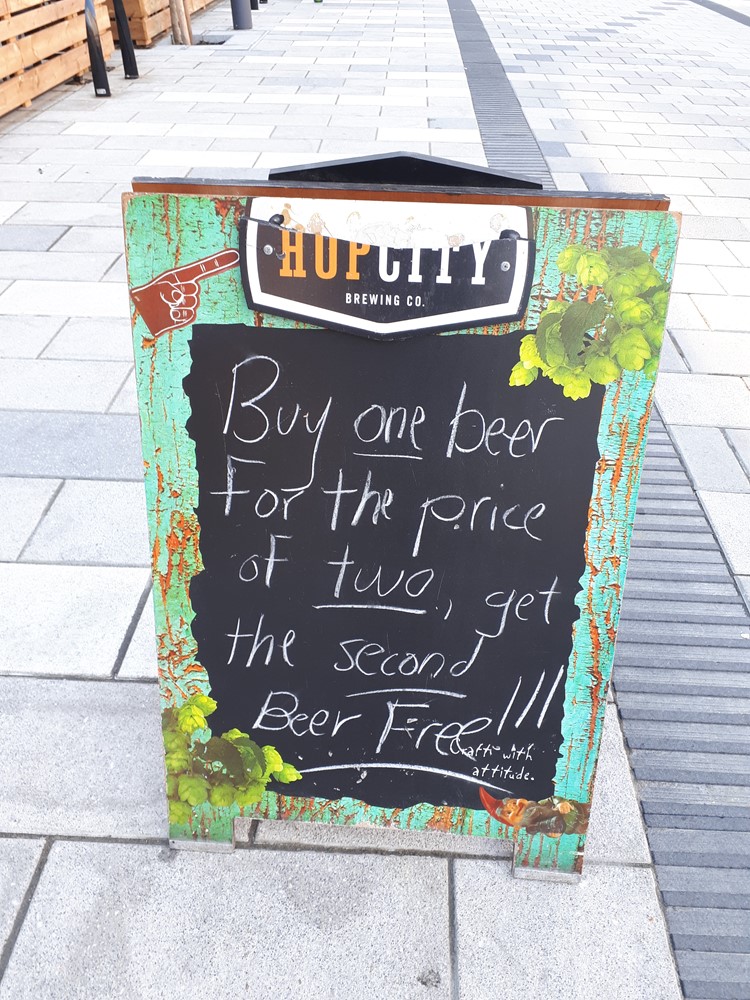 HOPCITY
BREWING CO.
Buy one beer
For the price
of two, get
the second
Beer Free!!!
Craft with
attitude.